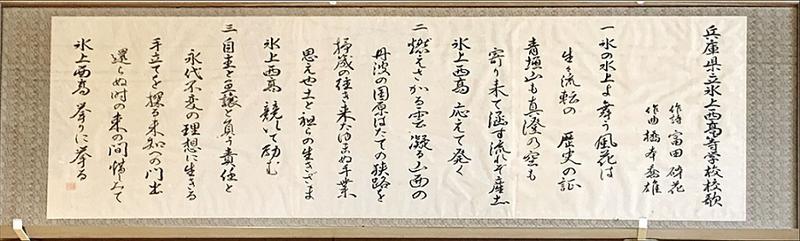 兵庫県立氷上西高等学校校歌
作詩 富田砕花
作曲 橋本
一 氷の水上よ舞う風花は
生々流転の 歴史の証
青垣山も真澄の空も
寄り来て涵す流れぞ産土
氷上西高 応えて発く
二 燃えさかる雲凝る山西の
丹波の国原はての狭路を
思えや土と祖らの生きざま
氷上西高 競いて励む
三 自主と良識と負う責任と
永代不変の理想に生きる
手立てを探る未知への門出
還らぬ時の束の間惜しみて
氷上西高 挙りに挙る